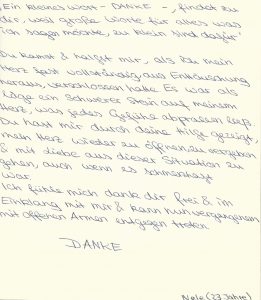 „Ein kleines Wort - DANKE -, findet zu
dir, weil große Worte für alles was
ich sagen möchte, zu klein sind dafür"
Du kamst & halfst mir, als ich mein
Herz fast vollständig aus Enttäuschung
heraus, verschlossen hatte. Es war als
läge ein schwerer Stein auf meinem
Herz, was jedes Gefühle abprallen ließ.
Du hast mir durch deine Hilfe gezeigt,
mein Herz wieder zu öffnen, zu vergeben
& mit Liebe aus dieser Situation zu
gehen, auch wenn es schmerzhaft
war.
Ich fühle mich dank dir frei & im
Einklang mit mir & kann nun vergangenem
mit offenen Armen entgegen treten.
DANKE
Nele (23 Jahre)